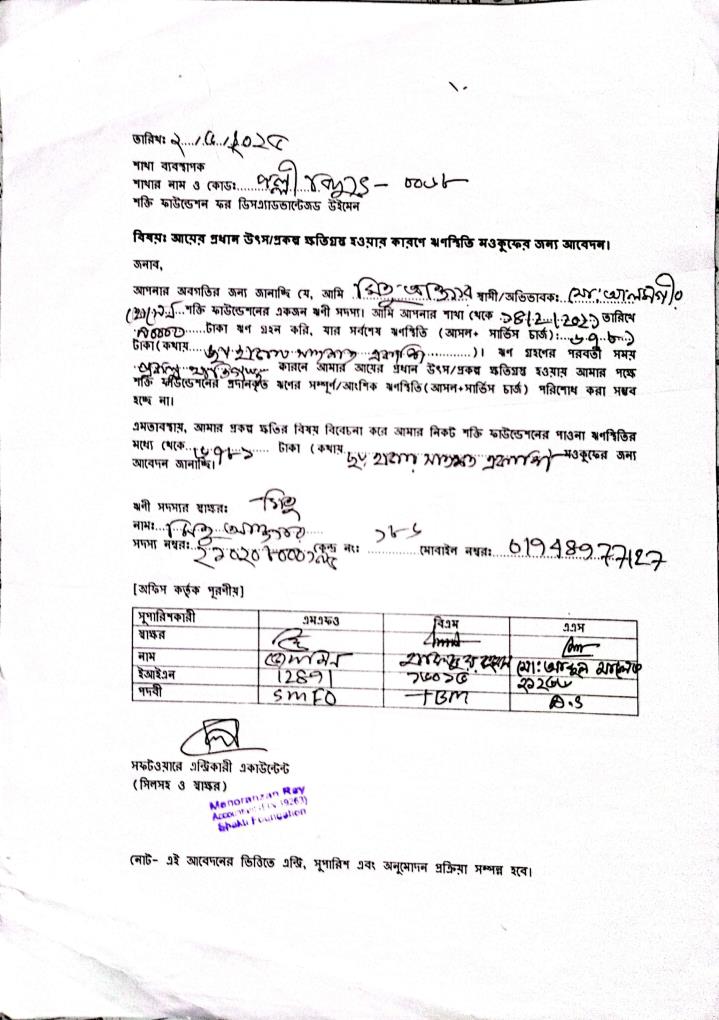 তারিখঃ ২../৫../২০২৫
শাখা ব্যবস্থাপক
শাখার নাম ও কোডঃ পল্লী বিদ্যুৎ - ০০৬৮
শক্তি ফাউন্ডেশন ফর ডিসএ্যাডভান্টেজড উইমেন
বিষয়ঃ আয়ের প্রধান উৎস/প্রকল্প ক্ষতিগ্রস্ত হওয়ার কারণে ঋণস্থিতি মওকুফের জন্য আবেদন।
জনাব,
আপনার অবগতির জন্য জানাচ্ছি যে, আমি মিতু আক্তার স্বামী/অভিভাবকঃ মোঃ আলমগীর
শক্তি ফাউন্ডেশনের একজন ঋনী সদস্য। আমি আপনার শাখা থেকে তারিখে
টাকা ঋণ গ্রহন করি, যার সর্বশেষ ঋণস্থিতি (আসল+ সার্ভিস চার্জ): ৬৭৮১
টাকা(কথায় ছয় হাজার সাতশত একাশি)। ঋণ গ্রহণের পরবর্তী সময়
কারনে আমার আয়ের প্রধান উৎস/প্রকল্প ক্ষতিগ্রস্ত হওয়ায় আমার পক্ষে
শক্তি ফাউন্ডেশনের প্রদানকৃত ঋণের সম্পূর্ণ/আংশিক ঋণস্থিতি(আসল+সার্ভিস চার্জ) পরিশোধ করা সম্ভব
হচ্ছে না।
এমতাবস্থায়, আমার প্রকল্প ক্ষতির বিষয় বিবেচনা করে আমার নিকট শক্তি ফাউন্ডেশনের পাওনা ঋণস্থিতির
মধ্যে থেকে ৬৭৮১ টাকা (কথায় ছয় হাজার সাতশত একাশি মওকুফের জন্য
আবেদন জানাচ্ছি।
ঋনী সদস্যর স্বাক্ষরঃ মিতু
নামঃ মিতু আক্তার
সদস্য নম্বরঃ কেন্দ্র নং: মোবাইল নম্বরঃ 01948977127
[অফিস কর্তৃক পূরণীয়]
সুপারিশকারী এমএফও বিএম এএস
স্বাক্ষর
নাম মোঃ আব্দুল মালেক
ইআইএন 12891
পদবী SMFO TBM A.S
সফটওয়ারে এন্ট্রিকারী একাউন্টেন্ট
(সিলসহ ও স্বাক্ষর)
Manoranzan Ray
Shakti Foundation
নোট- এই আবেদনের ভিত্তিতে এন্ট্রি, সুপারিশ এবং অনুমোদন প্রক্রিয়া সম্পন্ন হবে।